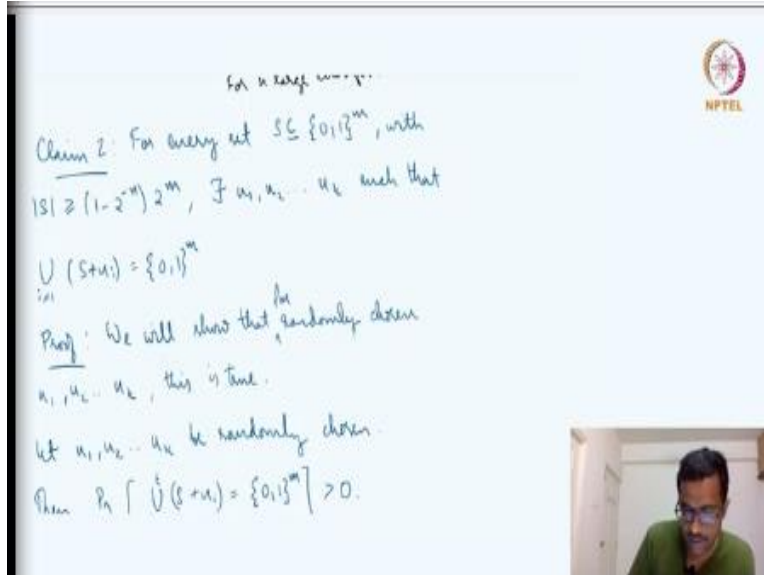 For n large
NPTEL
Claim 2: For every set S ⊆ {0,1}^m, with
|S| ≥ (1-2^{-n}) 2^m, ∃ u1, u2 .. uk such that
∪ (S+ui) = {0,1}^m
i=1
for
Proof: We will show that ‸ randomly chosen
u1, u2 .. uk, this is true.
Let u1, u2 .. uk be randomly chosen.
Then Pr [ ∪ (S+ui) = {0,1}^m ] > 0.